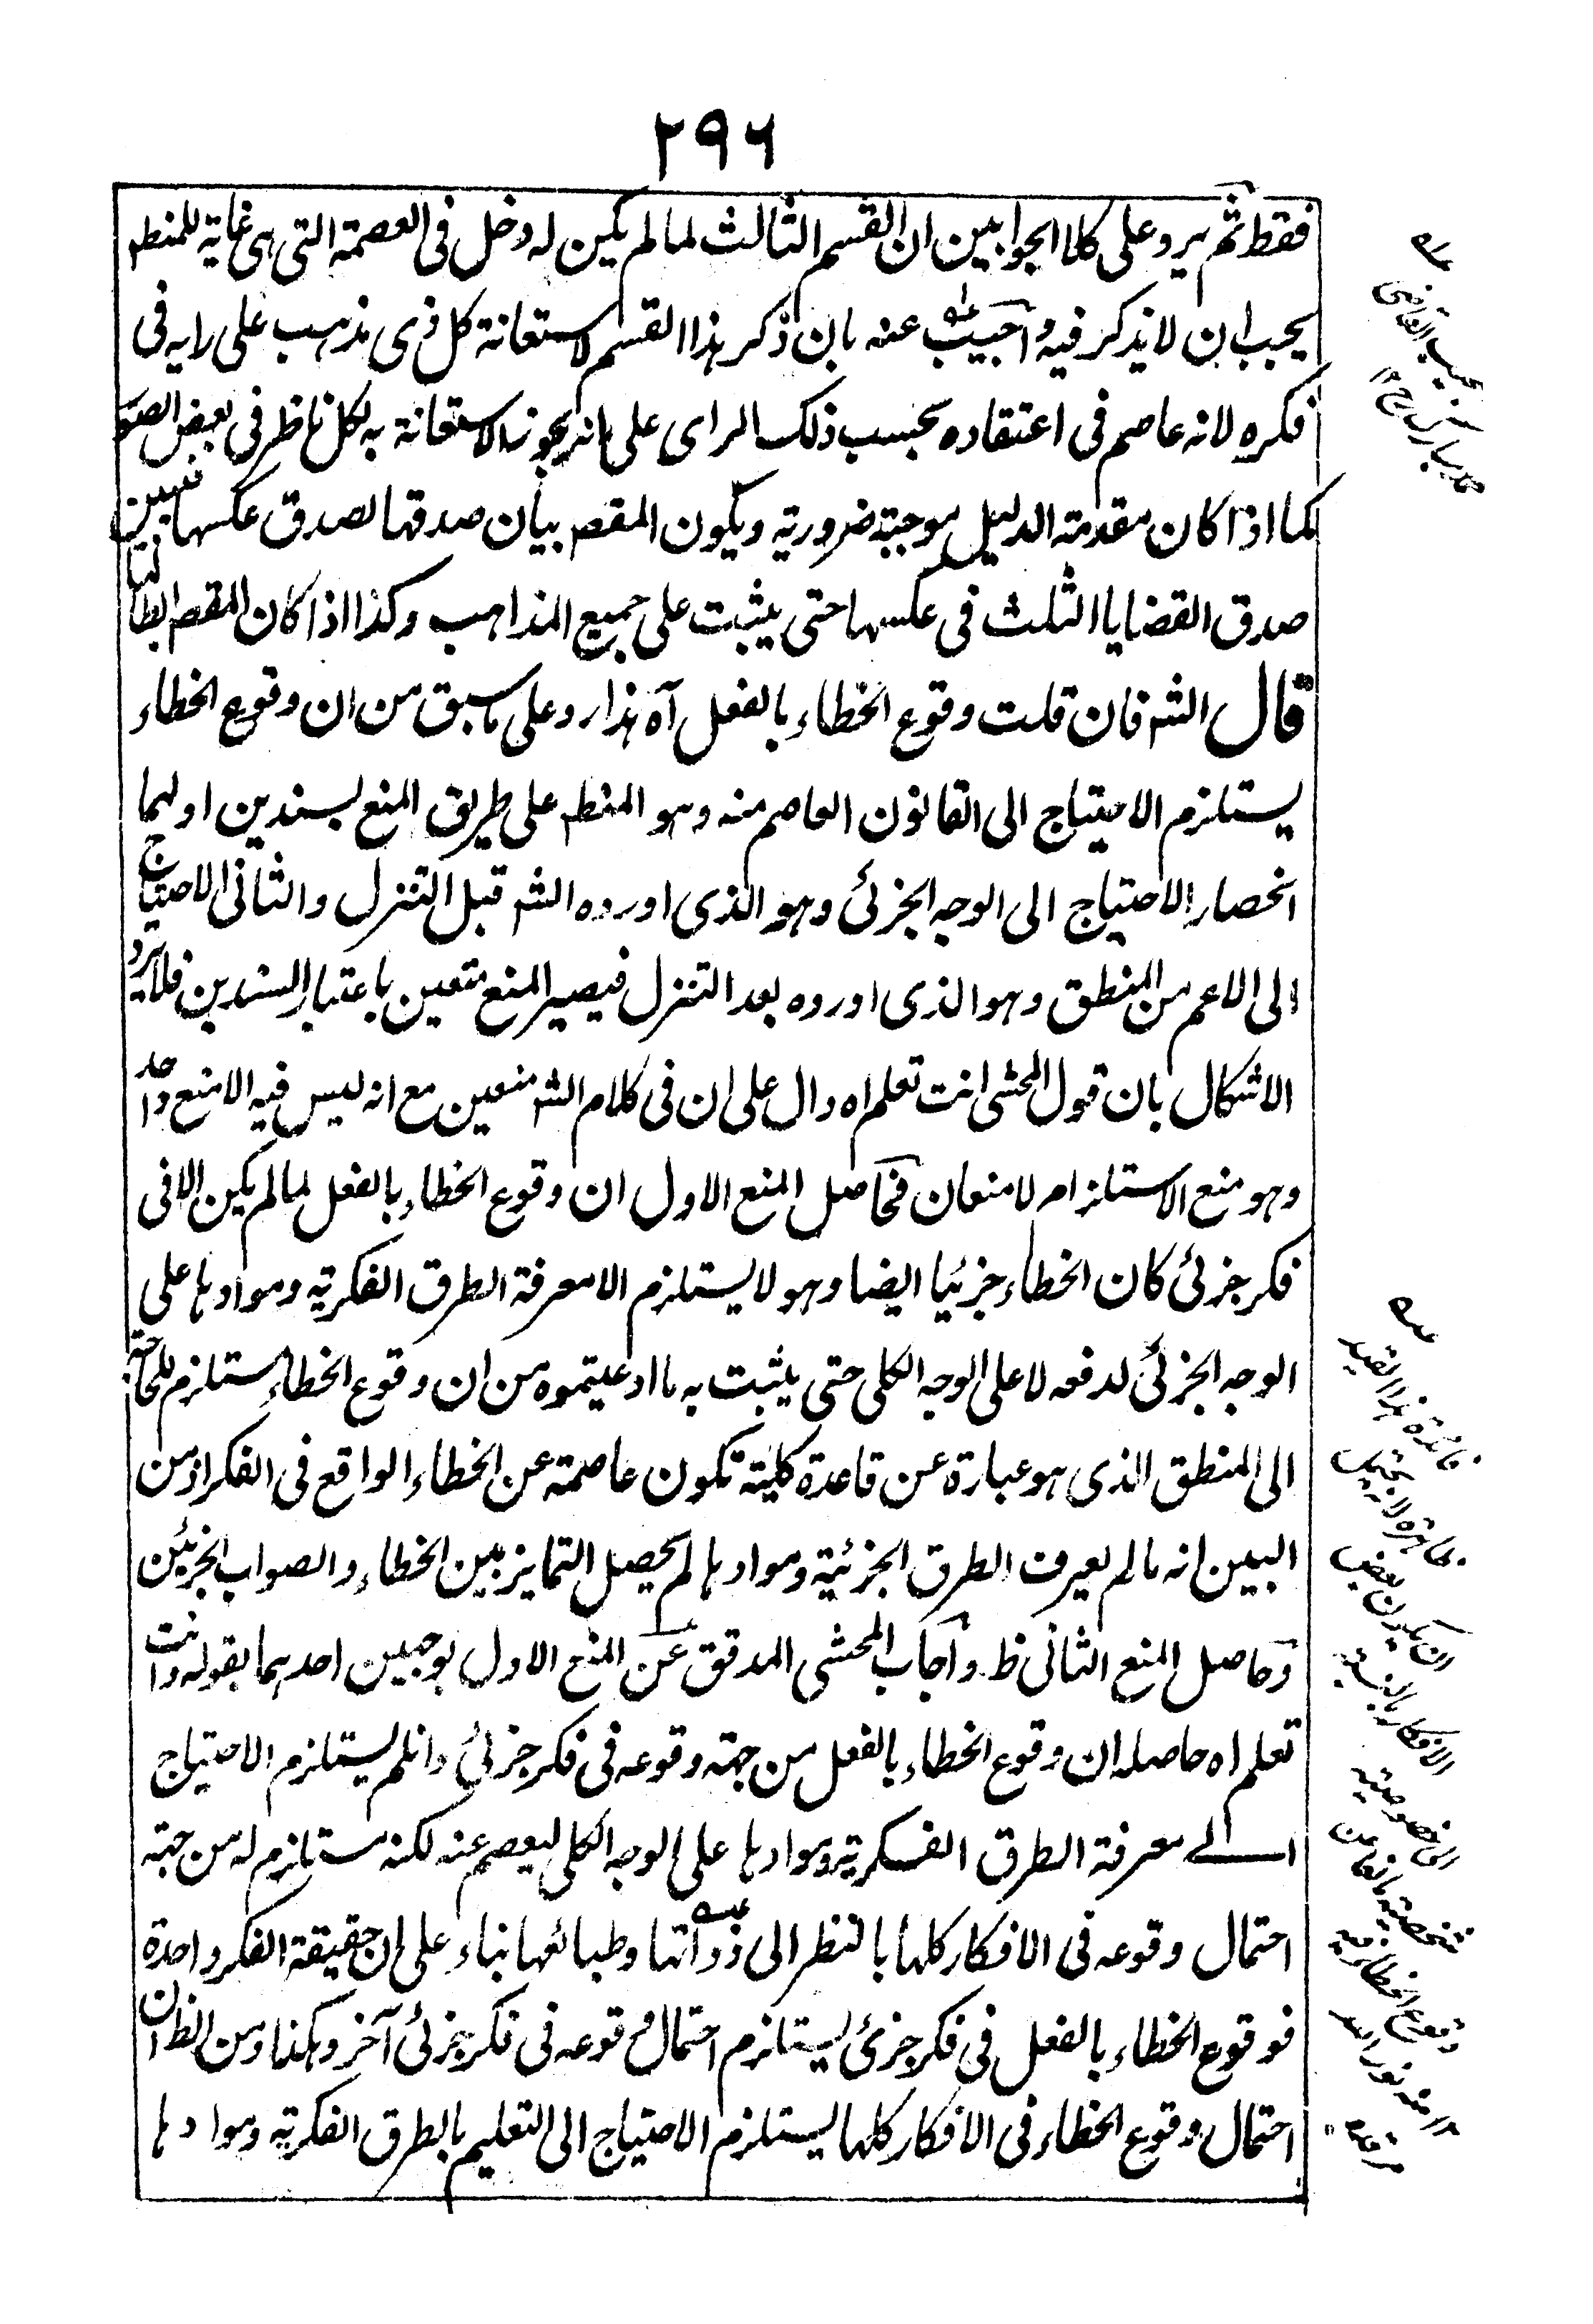 ٢٩٦
فقط ثم يرد على كلا الجوابين ان القسم الثالث لما لم يكن له دخل فى العصمة التى هى غاية للمنطہ
يجب ان لا يذكر فيه واجيب عنه بان ذكر هذا القسم لاستعانة كل ذى مذهب على رايه فى
فكره لانه عاصم فى اعتقاده بحسب ذلك الراى على انه يجوز الاستعانة به لكل ناظر فى بعض الصور
كما اذا كان مقدمة الدليل موجبة ضرورية ويكون المقصہ بيان صدقها لصدق عكسها فتبين
صدق القضايا الثلث فى عكسها حتى يثبت على جميع المذاهب وكذا اذا كان المقصہ ابطالها
قال الشہ فان قلت وقوع الخطاء بالفعل آه هذا رد على ما سبق من ان وقوع الخطاء
يستلزم الاحتياج الى القانون العاصم منه وهو المنطہ على طريق المنع بسندين اولهما
انحصار الاحتياج الى الوجه الجزئى وهو الذى اورده الشہ قبل التنزل والثانى الاحتياج
الى الاعم من المنطق وهو الذى اورده بعد التنزل فيصير المنع منعين باعتبار السندين فلا يرد
الاشكال بان قول المحشى انت تعلم اه دال على ان فى كلام الشہ منعين مع انه ليس فيه الا منع واحد
وهو منع الاستلزام لا منعان فحاصل المنع الاول ان وقوع الخطاء بالفعل لما لم يكن الا فى
فكر جزئى كان الخطاء جزئيا ايضا وهو لا يستلزم الا معرفة الطرق الفكرية وموادها على
الوجه الجزئى لدفعه لا على الوجه الكلى حتى يثبت به ما ادعيتموه من ان وقوع الخطاء مستلزم للحاجة
الى المنطق الذى هو عبارة عن قاعدة كلية تكون عاصمة عن الخطاء الواقع فى الفكر اذ من
البين انه ما لم يعرف الطرق الجزئية وموادها لم يحصل التمايز بين الخطاء والصواب الجزئين
وحاصل المنع الثانى ظ واجاب المحشى المدقق عن المنع الاول بوجهين احدهما بقوله وانت
تعلم اه حاصله ان وقوع الخطاء بالفعل من جهة وقوعه فى فكر جزئى وان لم يستلزم الاحتياج
الے معرفة الطرق الفكرية وموادها على الوجه الكلى ليعصم عنه لكنه مستلزم له من جهة
احتمال وقوعه فى الافكار كلها بالنظر الى ذواتها وطبائعها بناء على ان حقيقة الفكر واحدة
فوقوع الخطاء بالفعل فى فكر جزئى يستلزم احتمال وقوعه فى فكر جزئى آخر وهكذا ومن الظ ان
احتمال وقوع الخطاء فى الافكار كلها يستلزم الاحتياج الى التعليم بالطرق الفكرية وموادها
فائدة هذا القيد
ظاهرة لانه يحتمل
ان يكون بعض
الافكار بالنسبة
الى خصوصية
شخصية مانعا عن
وقوع الخطاء فيه
١٢ منه نور الله
مرقده